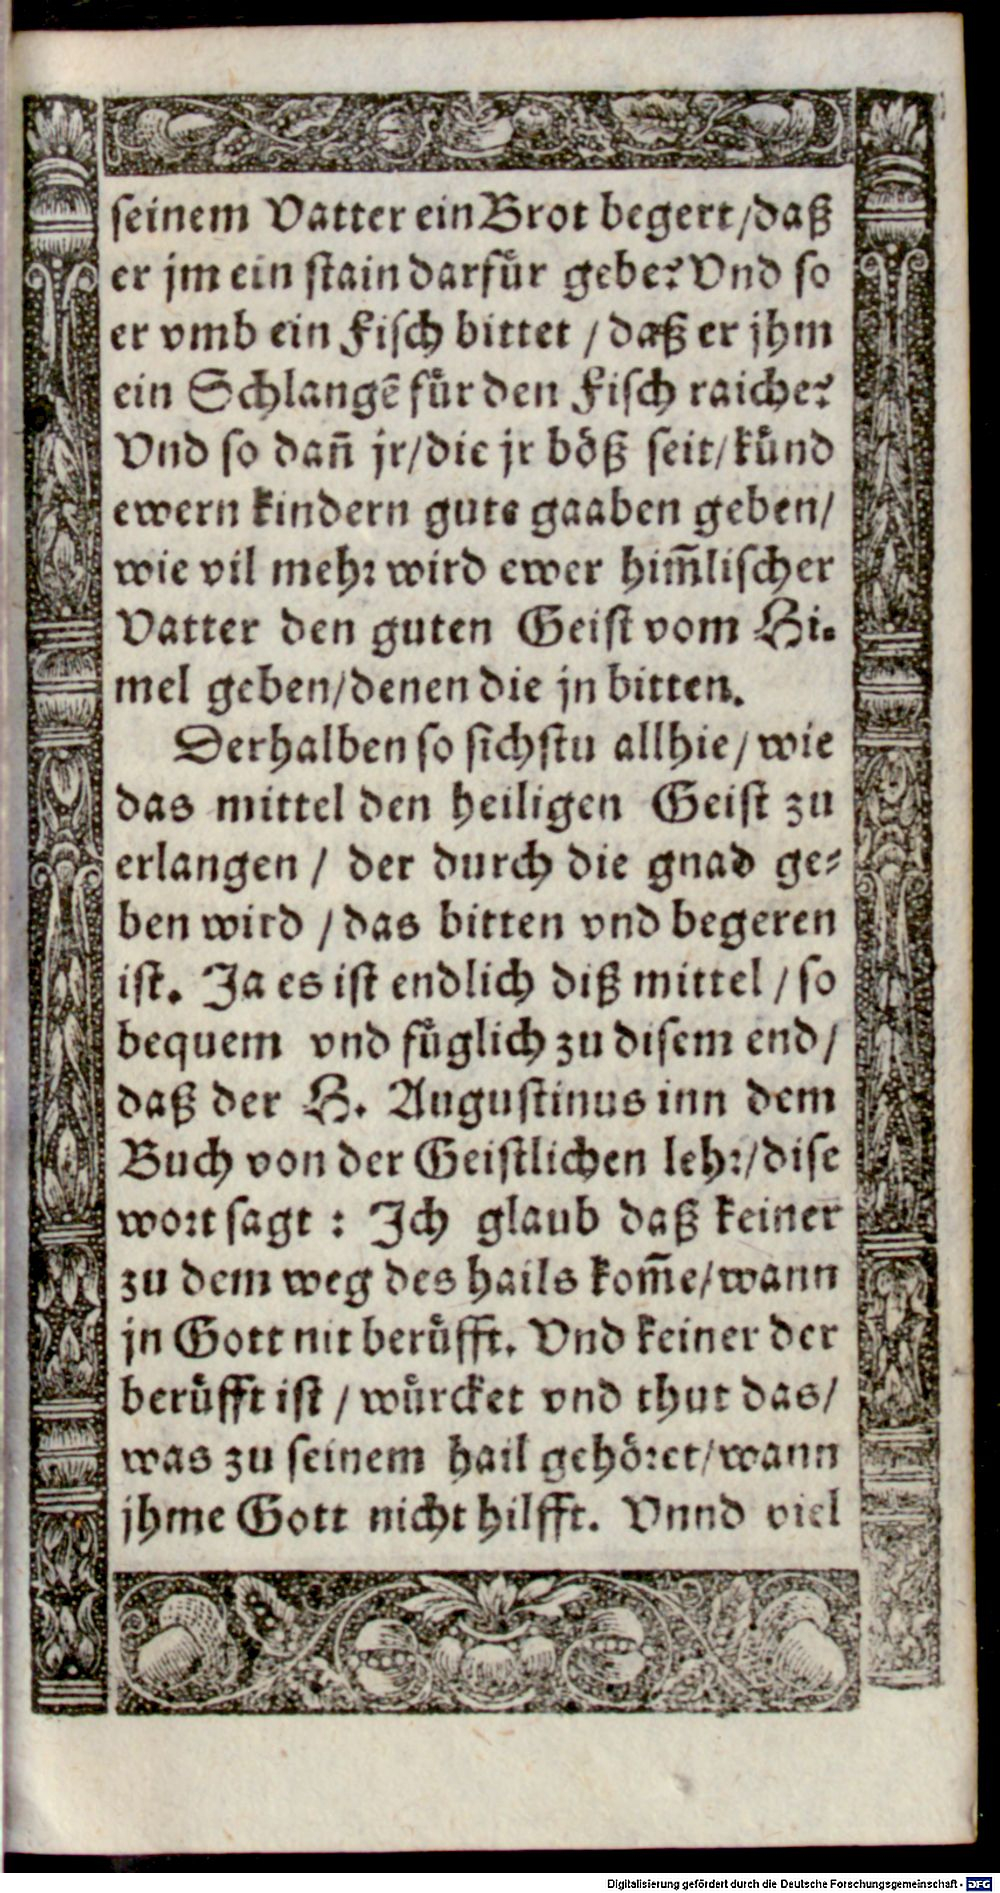 seinem Vatter ein Brot begert / daß
er jm ein stain darfuͤr gebe? Vnd so
er vmb ein Fisch bittet / daß er jhm
ein Schlangē fuͤr den Fisch raiche?
Vnd so dañ jr / die jr boͤß seit / kuͤnd
ewern kindern gute gaaben geben /
wie vil mehr wird ewer him̃lischer
Vatter den guten Geist vom Hi-
mel geben / denen die jn bitten.
Derhalben so sichstu allhie / wie
das mittel den heiligen Geist zu
erlangen / der durch die gnad ge-
ben wird / das bitten vnd begeren
ist. Ja es ist endlich diß mittel / so
bequem vnd fuͤglich zu disem end /
daß der H. Augustinus inn dem
Buch von der Geistlichen lehr / dise
wort sagt : Ich glaub daß keiner
zu dem weg des hails kom̃e / wann
jn Gott nit beruͤfft. Vnd keiner der
beruͤfft ist / wuͤrcket vnd thut das /
was zu seinem hail gehoͤret / wann
jhme Gott nicht hilfft. Vnnd viel
Digitalisierung gefördert durch die Deutsche Forschungsgemeinschaft - DFG